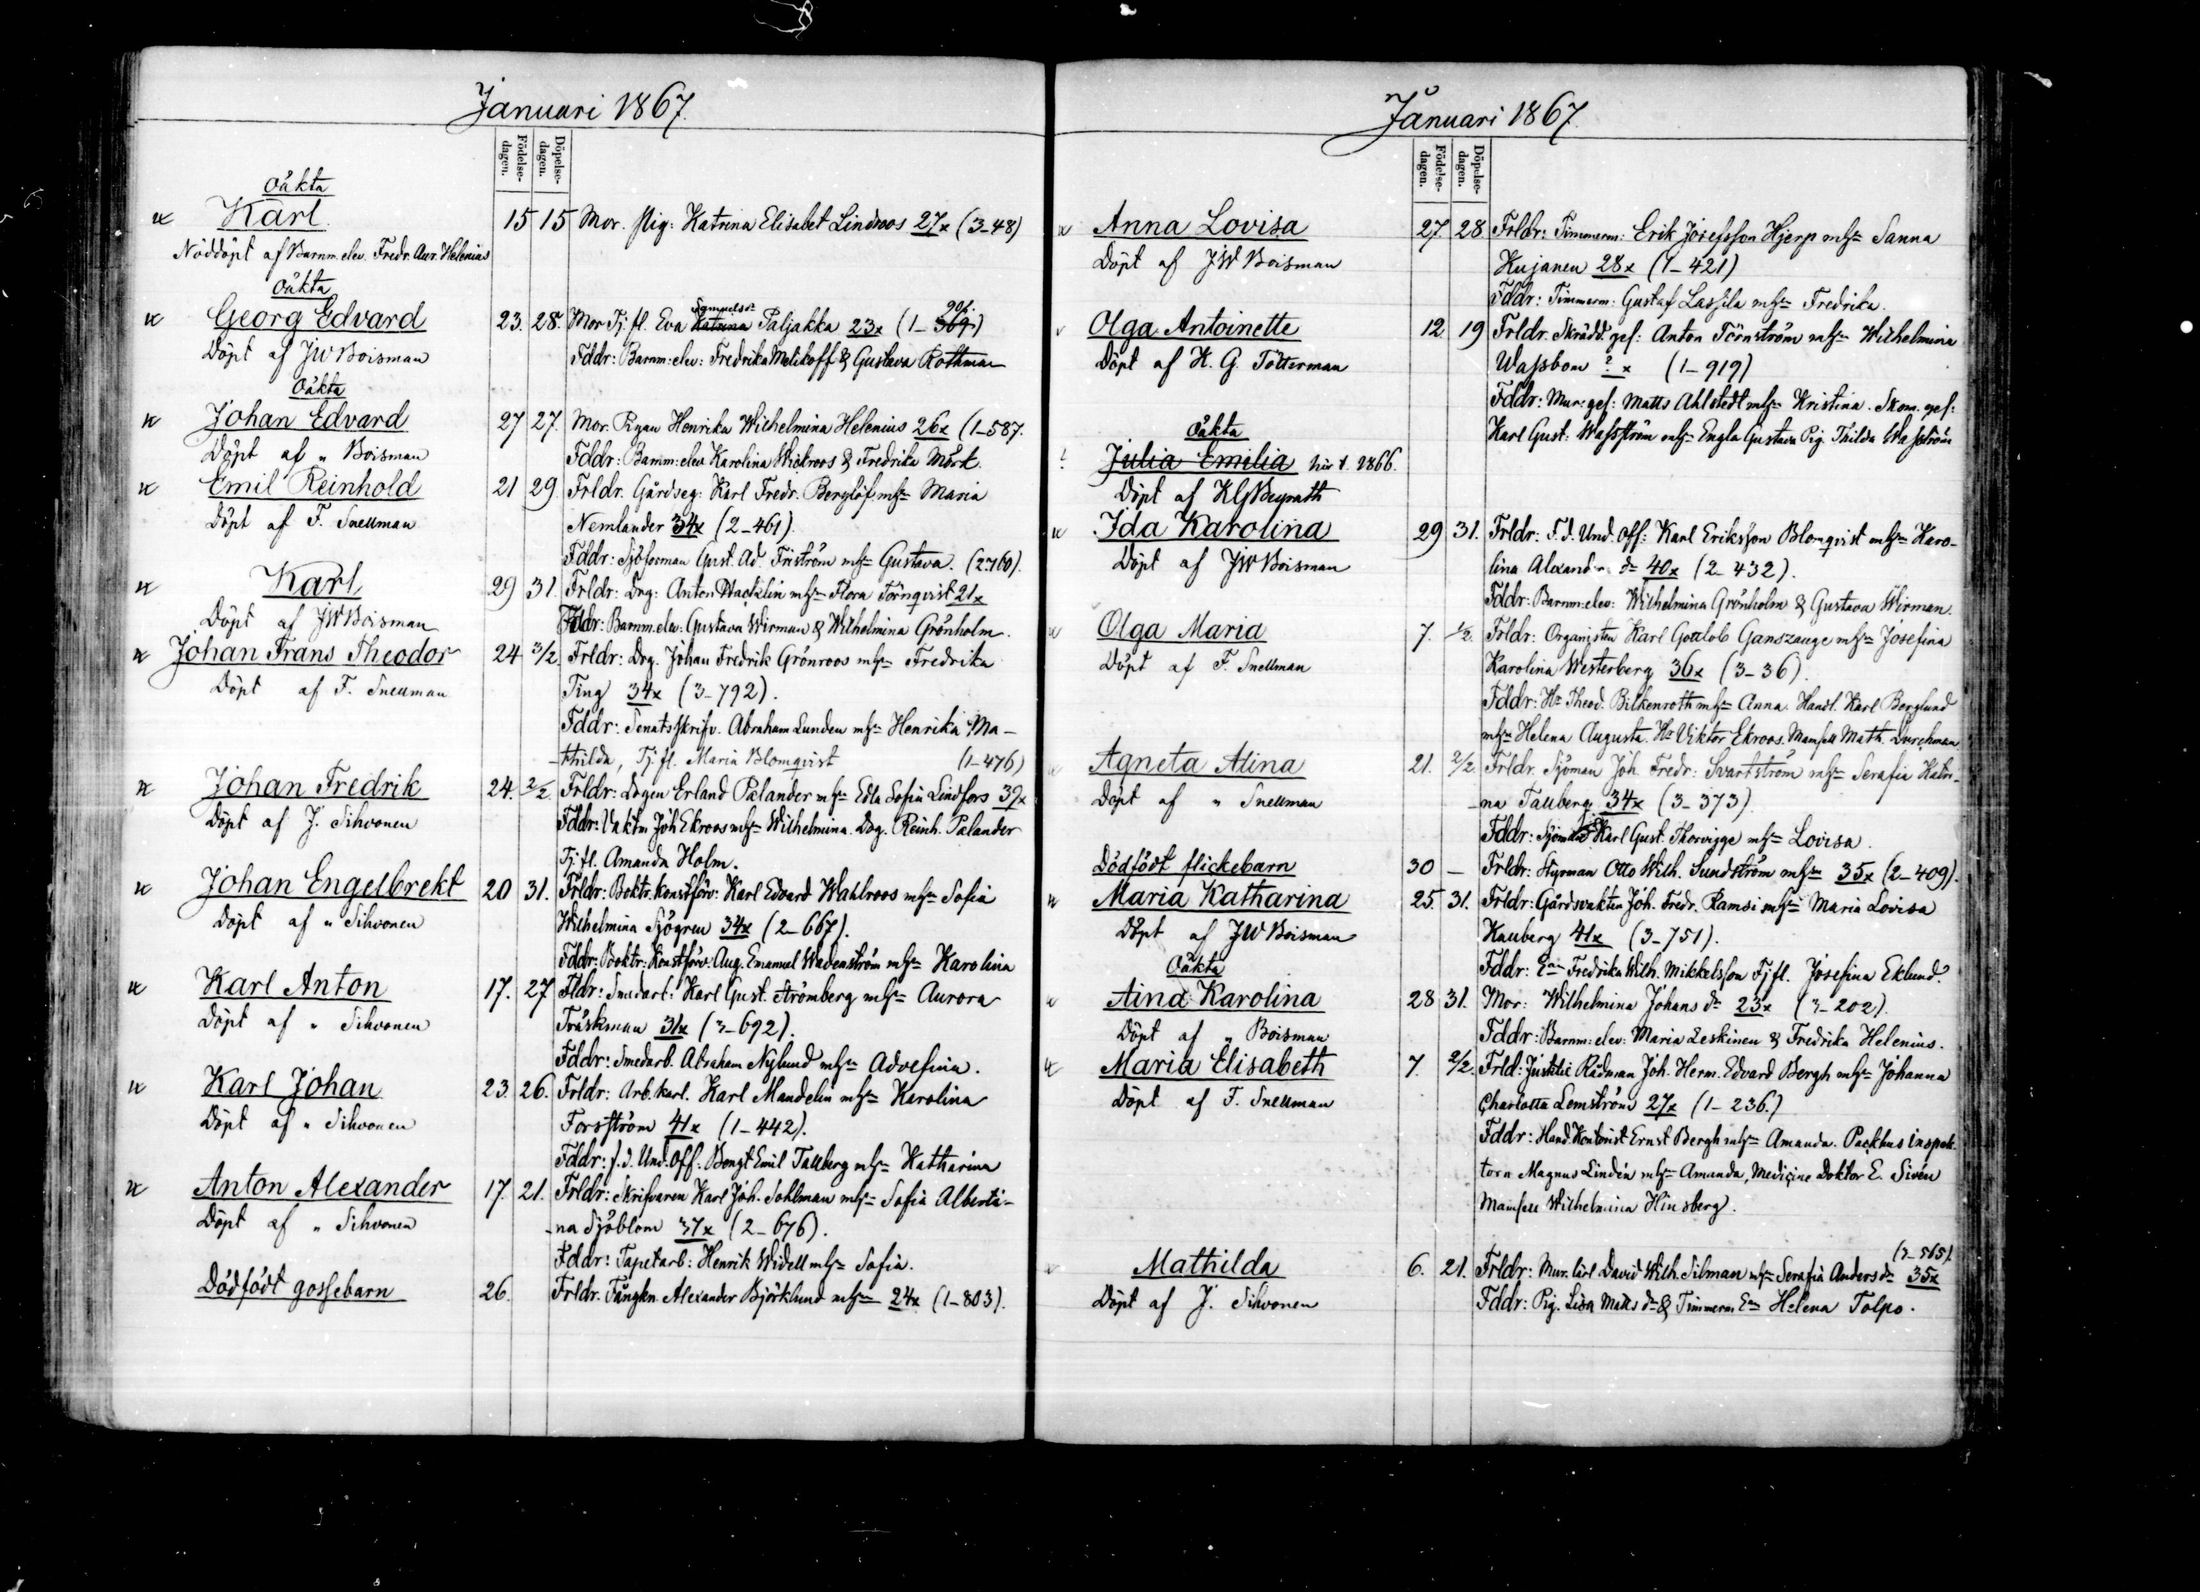 Januari 1867.
Födelse-dagen. Döpelse-dagen.
oäkta
Karl 15 15 Mor. Pig: Katrina Elisabet Lindroos 27x (3-48)
Nöddöpt af Barnm. elev. Fredr. Aur. Helenius
Oäkta
Georg Edvard 23. 28. Mor Tj. fl. Eva Katrina Paljakka 23x (1-369)
Döpt af JW Boisman Fddr: Barnm: elev: Fredrika Melikoff & Gustava Rothman
Oäkta
Johan Edvard 27 27. Mor. Pigan Henrika Wilhelmina Helenius 26x (1-587.
Döpt af " Boisman Fddr: Barnm: elev. Karolina Wickroos & Fredrika Mörk.
Emil Reinhold 21 29. Frldr. Gårdseg: Karl Fredr. Berglöf mhn Maria
Döpt af F. Snellman Nemlander 34x (2-461).
Fddr: Sjöforman Gust. Ad. Friström mhn Gustava. (2-760).
Karl 29 31. Frldr: Drg: Anton Wacklin mhn Flora Törnqvist 21x
Döpt af JW Boisman Fddr: Barnm. elev: Gustava Wirman & Wilhelmina Grönholm.
Johan Frans Theodor 24 3/2 Frldr: Drg. Johan Fredrik Grönroos mhn Fredrika
Döpt af F. Snellman Ting 34x (3-792).
Fddr: Senatsskrifv. Abraham Lunden mhn Henrika Ma-
-thilda, Tj. fl. Maria Blomqvist (1-476)
Johan Fredrik 24. 2/2 Frldr: Drgen Erland Palander mhn Edla Sofia Lindfors 39x
Döpt af J. Sihvonen Fddr: Vaktm Joh Ekroos mhn Wilhelmina. Drg. Reinh. Palander
Tj. fl. Amanda Holm.
Johan Engelbrekt 20 31. Frldr: Boktr. konstförv: Karl Edvard Wahlroos mhn Sofia
Döpt af " Sihvonen Wilhelmina Sjögren 34x (2-667).
Fddr: Boktr: Konstförv: Aug. Emanuel Wadenström mhn Karolina
Karl Anton 17. 27 Fldr: Smedarb: Karl Gust. Strömberg mhn Aurora
Döpt af " Sihvonen Träskman 31x (3-692).
Fddr: Smedarb. Abraham Nylund mhn Adolfina.
Karl Johan 23. 26. Frldr: Arb. karl. Karl Mandelin mhn Karolina
Döpt af " Sihvonen Forsström 41x (1-442).
Fddr: f. d. Und. Off. Bengt Emil Tallberg mhn Katharina
Anton Alexander 17. 21. Frldr: Skrifvaren Karl Joh. Sohlman mhn Sofia Alberti-
Döpt af " Sihvonen -na Sjöblom 37x (2-676).
Fddr: Tapetarb: Henrik Widell mhn Sofia.
Dödfödt gossebarn 26. Frldr. Fångkn. Alexander Björklund mhn 24x (1-803).
Januari 1867.
Födelse-dagen. Döpelse-dagen.
Anna Lovisa 27. 28. Frldr: Timmerm: Erik Josefsson Hjerp mhn Sanna
Döpt af JW Boisman Kujanen 28x (1-421)
Fddr: Timmerm: Gustaf Lassila mhn Fredrika.
Olga Antoinette 12. 19 Frldr. Skrädd. ges: Anton Törnström mhn Wilhelmina
Döpt af K. G. Tötterman Wassbom ? x (1-919)
Fddr: Mur: ges: Matts Ahlstedt mhn Kristina. Skom. ges:
oäkta Karl Gust: Wassström mhn Engla Gustava Pig. Thilda Wasström
Julia Emilia hör t. 1866.
Döpt af
Ida Karolina 29 31. Frldr: F. d. Und. Off: Karl Eriksson Blomqvist mhn Karo-
Döpt af JW Boisman lina Alexand. dr 40x (2-432).
Fddr: Barnm: elev: Wilhelmina Grönholm & Gustava Wirman.
Olga Maria 7. 1/2. Frldr: Organisten Karl Gottlob Ganszauge mhn Josefina
Döpt af F. Snellman Karolina Westerberg 36x (3-36).
Fddr: Hr Theod. Bilkenroth mhn Anna. Handl. Karl Berglund
mhn Helena Augusta. Hr Viktor Ekroos. Mamsell Math. Durchman
Agneta Alina 21. 2/2 Frldr. Sjöman Joh. Fredr: Svartström mhn Serafia Katri-
Döpt af " Snellman -na Tallberg 34x (3-373).
Fddr: Sjöman Karl Gust. Thorvigge mhn Lovisa.
Dödfödt flickebarn 30 – Frldr: Styrman Otto Wilh. Sundström mhn 35x (2-409).
Maria Katharina 25. 31. Frldr: Gårdsvakten Joh. Fredr. Ramsi mhn Maria Lovisa
Döpt af JW Boisman Kauberg 41x (3-751).
Oäkta Fddr: Enn Fredrika Wilh. Mikkelsson Tj fl. Josefina Eklund.
Aina Karolina 28 31. Mor: Wilhelmina Johans dr 23x (3-202).
Döpt af " Boisman Fddr: Barnm: elev: Maria Leskinen & Fredrika Helenius.
Maria Elisabeth 7. 2/2. Frld: Justitie Rådman Joh. Herm. Edvard Bergh mhn Johanna
Döpt af F. Snellman Charlotta Lemström 27x (1-236.)
Fddr: Hand. Kontorist Ernst Bergh mhn Amanda. Packhus inspek-
torn Magnus Lindén mhn Amanda, Medicine Doktor E. Sivén
Mamsell Wilhelmina Hinsberg.
(3-515).
Mathilda 6. 21. Frldr: Mur. lärl David Wilh. Silman mhn Serafia Anders dr 35x
Döpt af J. Sihvonen Fddr: Pig. Lisa Matts dr & Timmerm. Enn Helena Tolpo.